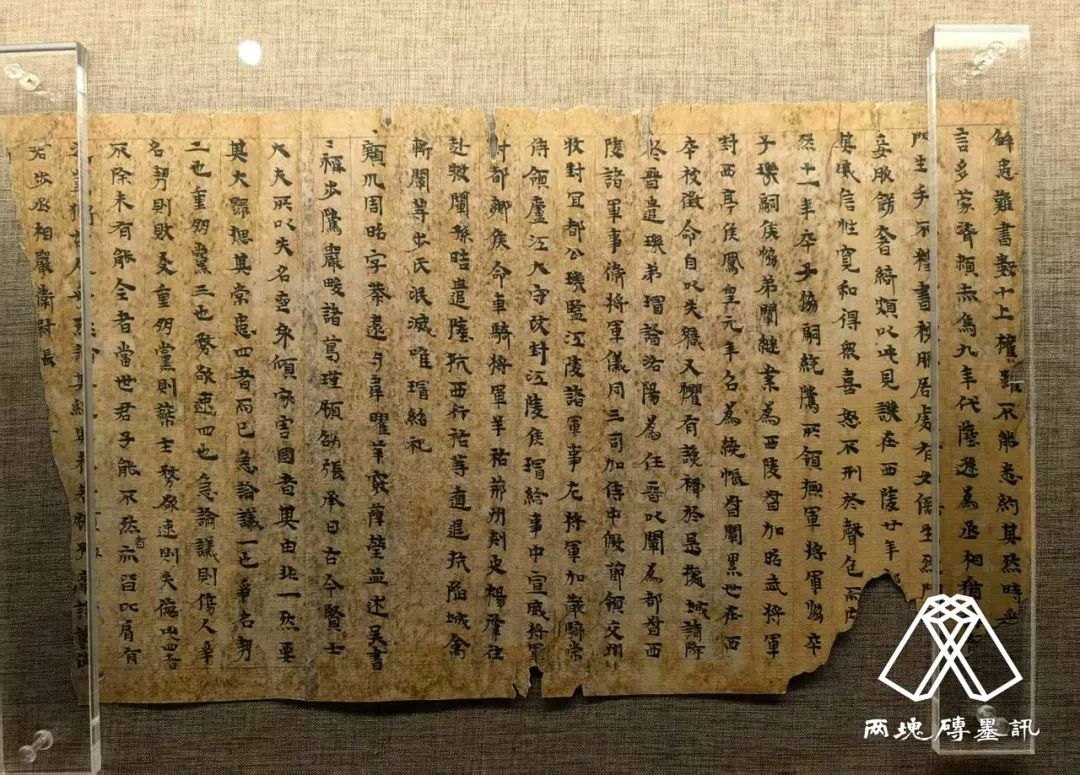 解患難書數十上權雖不能悉納其然時采
言多蒙濟賴赤烏九年代陸遜為丞相猶
門生手不釋書被服居處有如儒生然門
妾服飾奢綺頗以此見譏在西陵廿年
其威信性寬和得眾喜怒不形於聲色而內
然十一年卒子協嗣統騭所領撫軍將軍協卒
子璣嗣侯協弟闡繼業為西陵督加昭武將軍
封西亭侯鳳皇元年召為繞帳督闡累世在西
卒被徵命自以失職又懼有讒禍於是據城請降
於晉遣璣弟璿詣洛陽為任晉以闡為都督西
陵諸軍事衛將軍儀同三司加侍中假節領交州
牧封宜都公璣監江陵諸軍事左將軍加散騎常
侍領廬江太守改封江陵侯璿給事中宣威將軍
封都鄉侯命車騎將軍羊祜荊州刺史楊肇往
赴救闡孫晧遣陸抗西行祜等遁退抗陷城禽
斬闡等步氏泯滅唯璿紹祀
潁川周昭字恭遠與韋曜華覈薛瑩並述吳書
稱步騭嚴畯諸葛瑾顧劭張承曰古今賢士
大夫所以失名喪身傾家害國者其由非一然要
其大歸揔其常患四者而已急論議一也爭名勢
二也重朋黨三也務欲速四也急論議則傷人爭
名勢則敗友重朋黨則蔽主務欲速則失德此四者
不除未有能全者當世君子能不然者亦比肩有
若步丞相嚴衛尉張